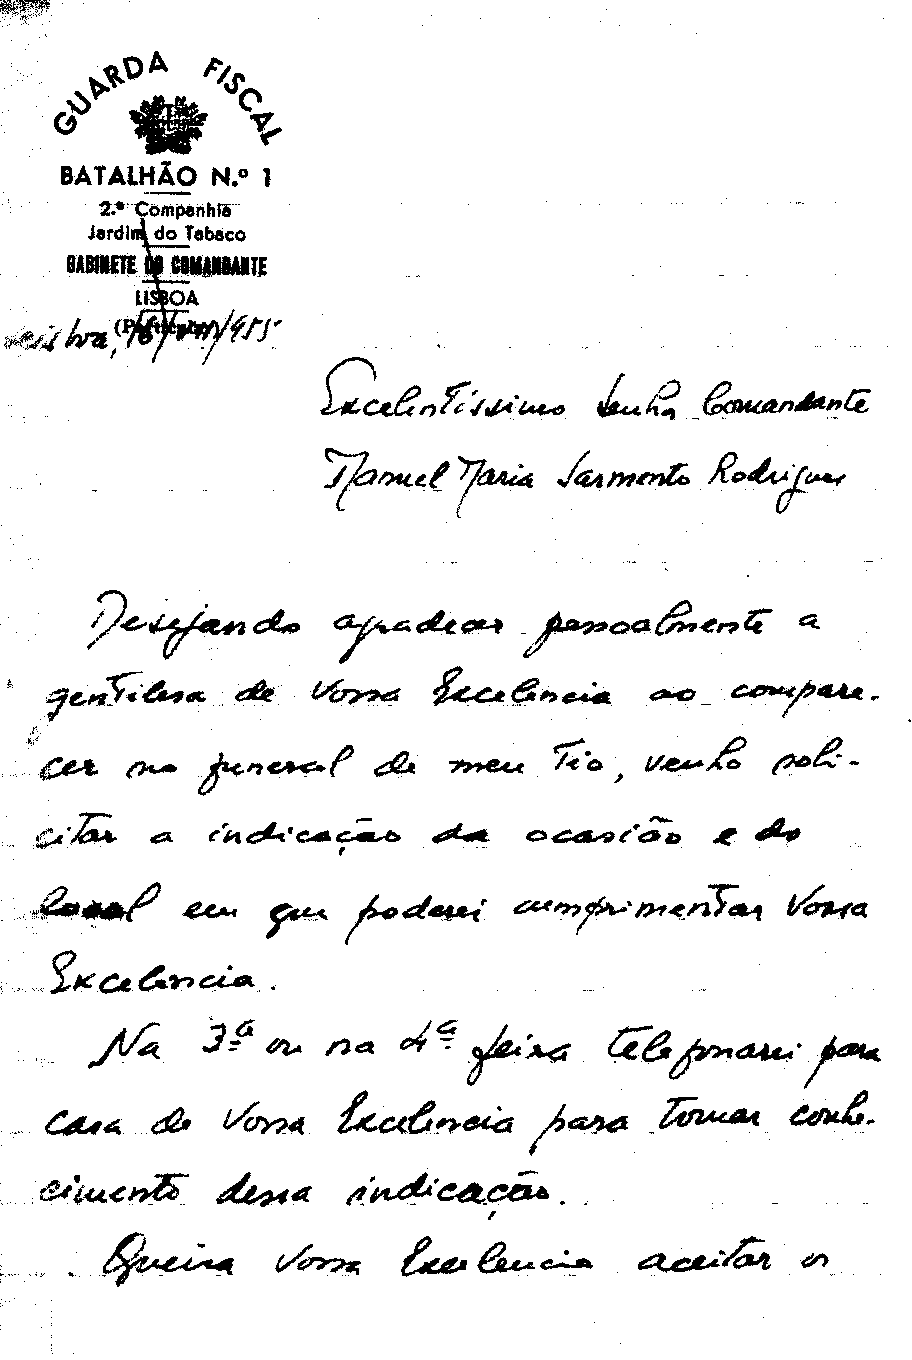 GUARDA FISCAL
BATALHÃO N.º 1
2.ª Companhia
Jardim do Tabaco
GABINETE DO COMANDANTE
LISBOA
(Particular)
Lisboa, 16/VIII/955
Excelentíssimo Senhor Comandante
Manuel Maria Sarmento Rodrigues
Desejando agradecer pessoalmente a
gentilesa de Vossa Excelencia ao compare-
cer no funeral de meu Tio, venho soli-
citar a indicação da ocasião e do
local em que poderei cumprimentar Vossa
Excelencia.
Na 3ª ou na 4ª feira telefonarei para
casa de Vossa Excelencia para tomar conhe-
cimento dessa indicação.
Queira Vossa Excelencia aceitar os